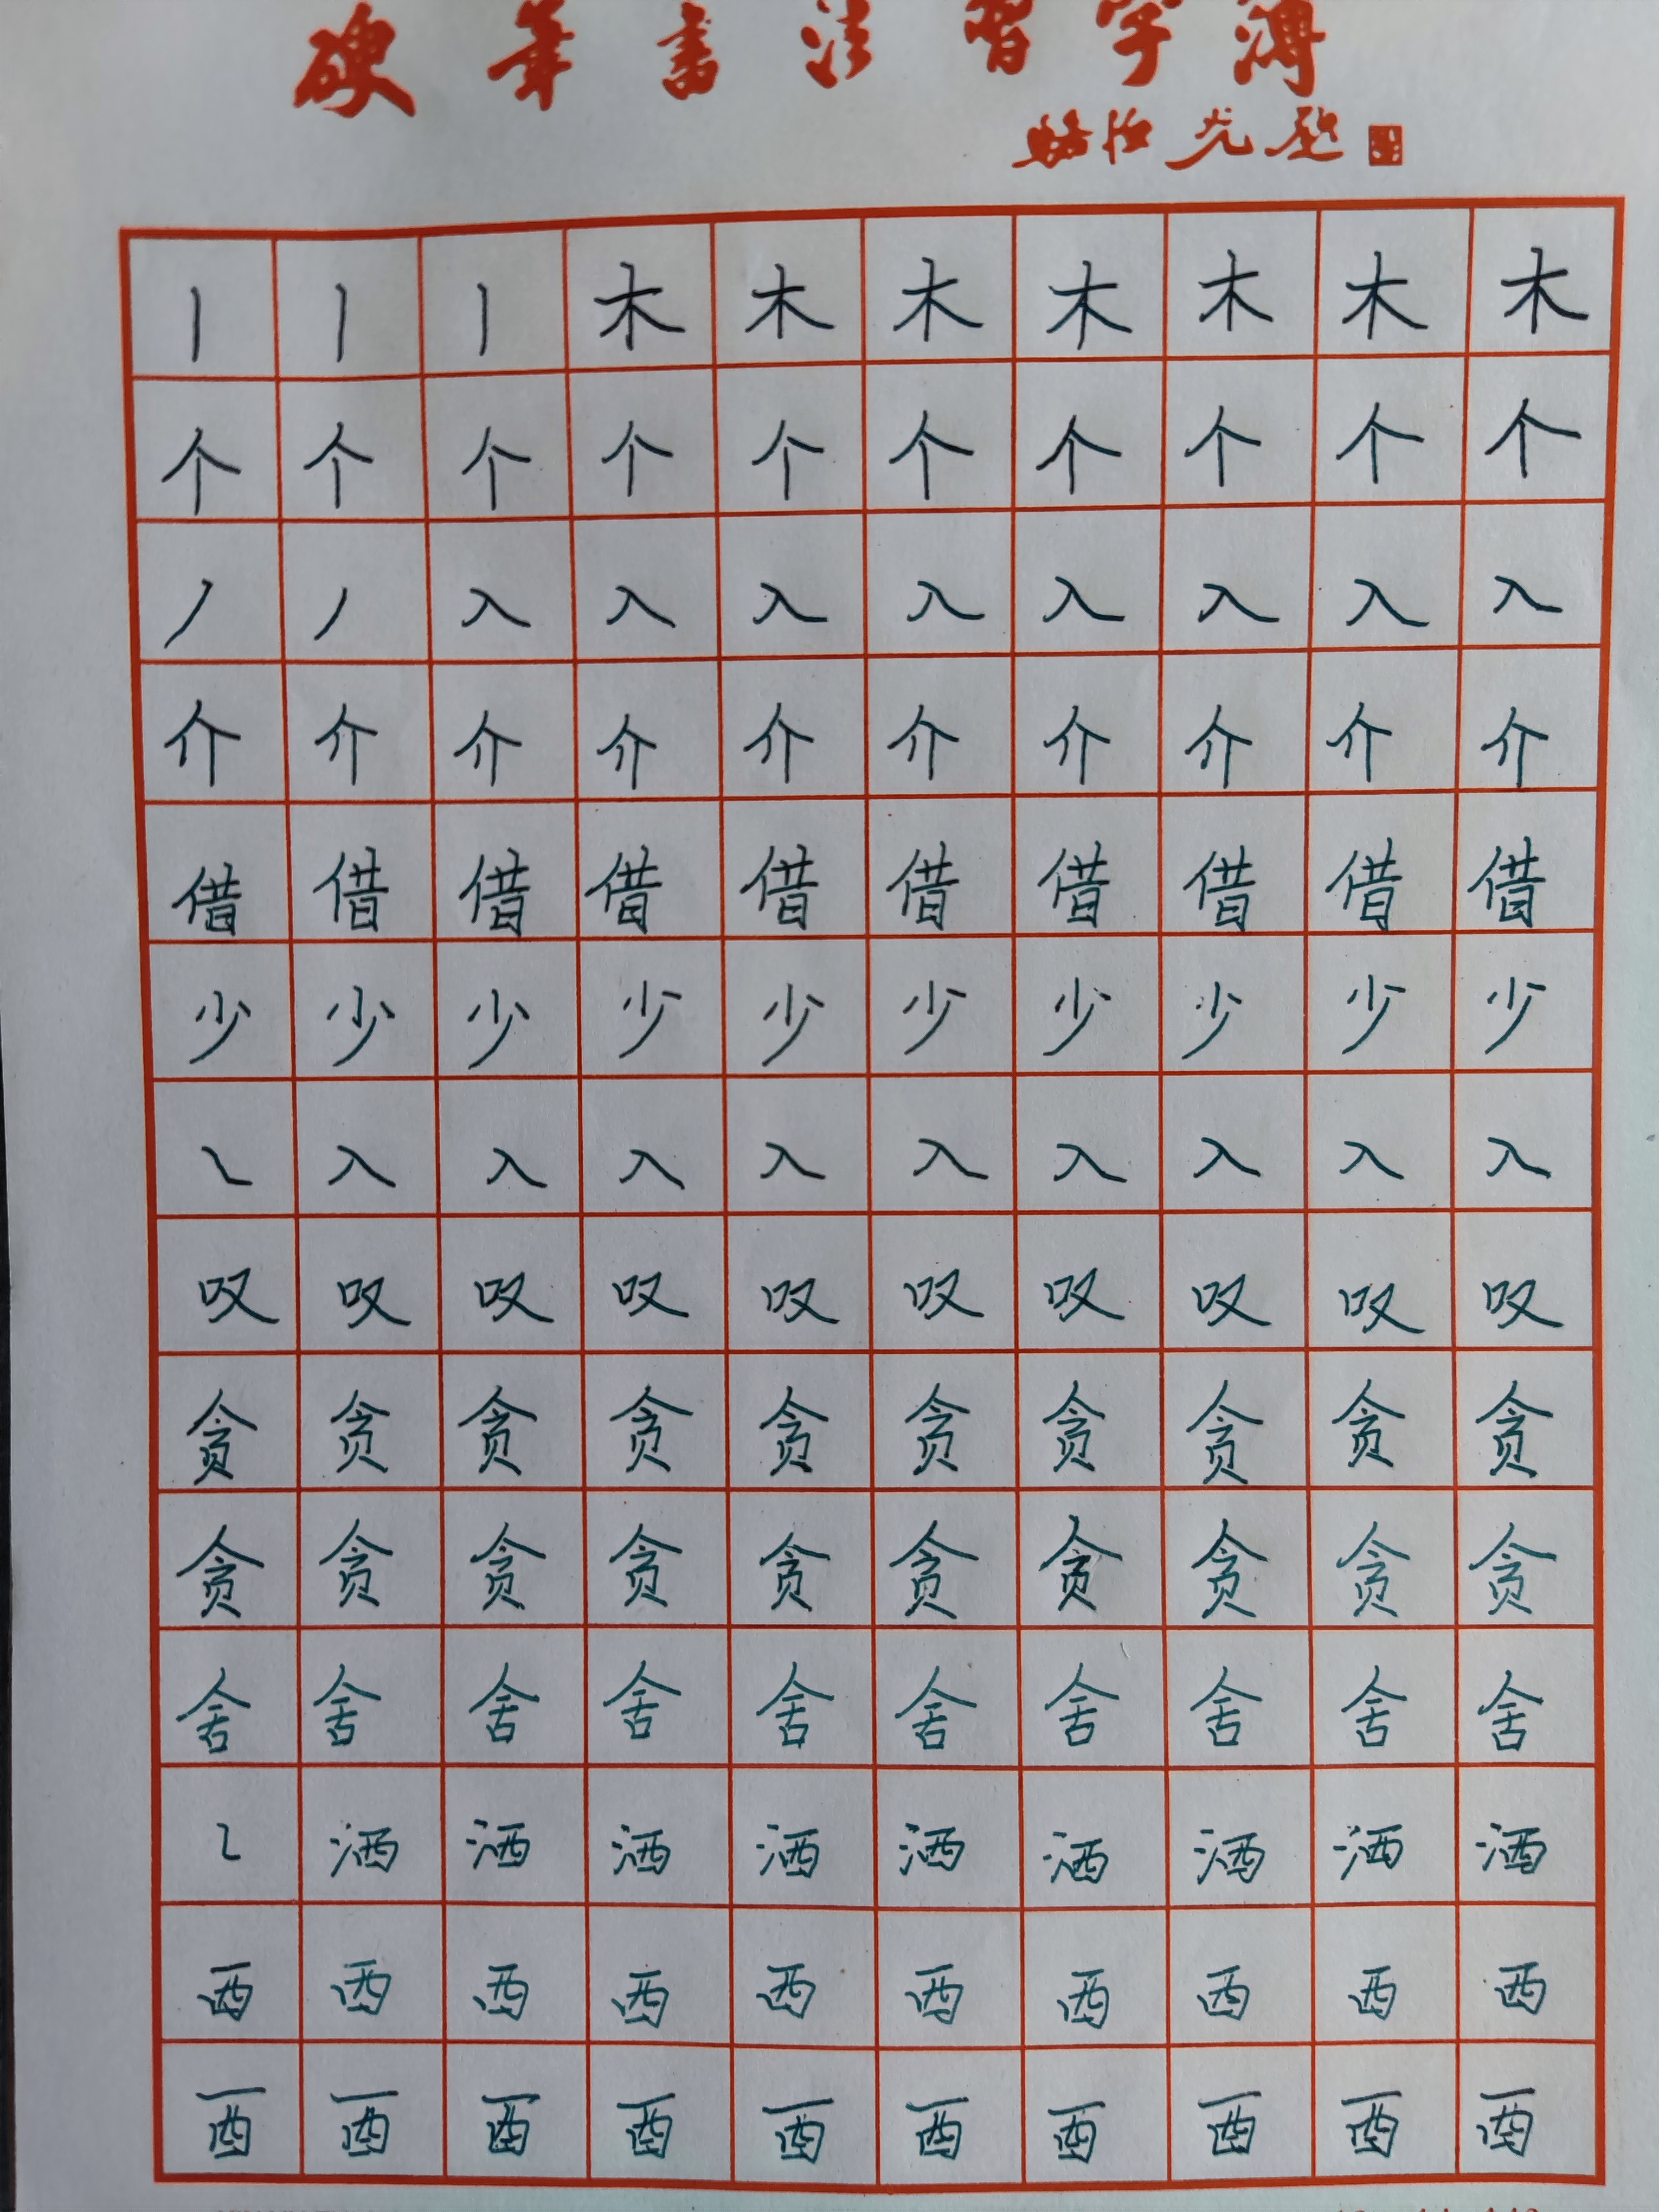 硬筆書法習字簿
丨丨丨木木木木木木木
个个个个个个个个个个
丿丿入入入入入入入入
介介介介介介介介介介
借借借借借借借借借借
少少少少少少少少少少
㇏入入入入入入入入入
叹叹叹叹叹叹叹叹叹叹
贪贪贪贪贪贪贪贪贪贪
贪贪贪贪贪贪贪贪贪贪
舍舍舍舍舍舍舍舍舍舍
㇄洒洒洒洒洒洒洒洒酒
西西西西西西西西西西
酉酉酉酉酉酉酉酉酉酉